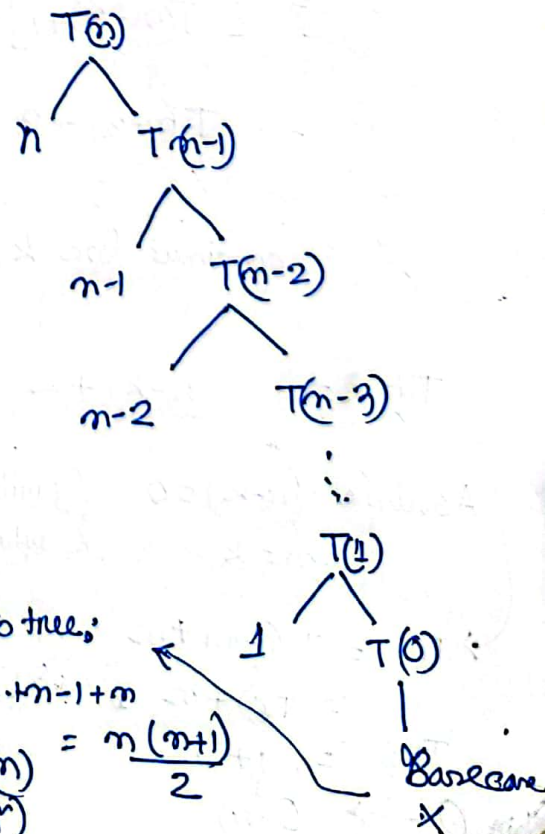 T(n)
n T(n-1)
n-1 T(n-2)
n-2 T(n-3)
T(1)
o tree;
1 T(0)
.+n-1+n
= n(n+1)
2
n)
Basecase
x